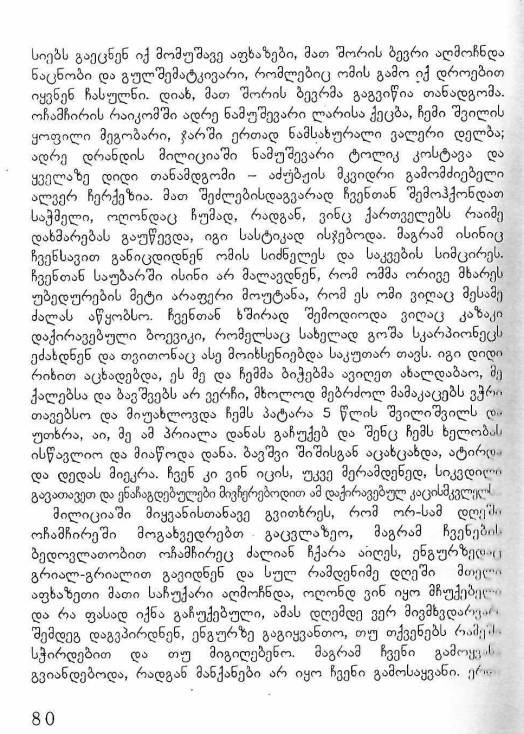 სიებს გაეცნენ იქ მომუშავე აფხაზები, მათ შორის ბევრი აღმოჩნდა
ნაცნობი და გულშემატკივარი, რომლებიც ომის გამო იქ დროებით
იყვნენ ჩასულნი. დიახ, მათ შორის ბევრმა გაგვიწია თანადგომა.
ოჩამჩირის რაიკომში ადრე ნამუშევარი ლარისა ქეცბა, ჩემი შვილის
ყოფილი მეგობარი, ჯარში ერთად ნამსახურალი ვალერი დელბა;
ადრე დრანდის მილიციაში ნამუშევარი ტოლიკ კოსტავა და
ყველაზე დიდი თანამდგომი – აძუბჟის მკვიდრი გამომძიებელი
ალვერ ჩერქეზია. მათ შეძლებისდაგვარად ჩვენთან შემოჰქონდათ
საჭმელი, ოღონდაც ჩუმად, რადგან, ვინც ქართველებს რაიმე
დახმარებას გაუწევდა, იგი სასტიკად ისჯებოდა. მაგრამ ისინიც
ჩვენსავით განიცდიდნენ ომის სიძნელეს და საკვების სიმცირეს.
ჩვენთან საუბარში ისინი არ მალავდნენ, რომ ომმა ორივე მხარეს
უბედურების მეტი არაფერი მოუტანა, რომ ეს ომი ვიღაც მესამე
ძალას აწყობსო. ჩვენთან ხშირად შემოდიოდა ვიღაც კაზაკი
დაქირავებული ბოევიკი, რომელსაც სახელად გოშა სკარპიონეცს
ეძახდნენ და თვითონაც ასე მოიხსენიებდა საკუთარ თავს. იგი დიდი
რიხით აცხადებდა, ეს მე და ჩემმა ბიჭებმა ავიღეთ ახალდაბაო, მე
ქალებსა და ბავშვებს არ ვერჩი, მხოლოდ მებრძოლ მამაკაცებს ვჭრი
თავებსო და მიუახლოვდა ჩემს პატარა 5 წლის შვილიშვილს და
უთხრა, აი, მე ამ პრიალა დანას გაჩუქებ და შენც ჩემს ხელობას
ისწავლიო და მიაწოდა დანა. ბავშვი შიშისგან აცახცახდა, ატირდა
და დედას მიეკრა. ჩვენ კი ვინ იცის, უკვე მერამდენედ, სიკვდილი
გავათავეთ და ენაჩაგდებულები მივჩერებოდით ამ დაქირავებულ კაცისმკვლელს.
მილიციაში მიყვანისთანავე გვითხრეს, რომ ორ-სამ დღეში
ოჩამჩირეში მოგახვედრებთ გაცვლაზეო, მაგრამ ჩვენების
ბედოვლათობით ოჩამჩირეც ძალიან ჩქარა აიღეს, ენგურზედაც
გრიალ-გრიალით გავიდნენ და სულ რამდენიმე დღეში მთელი
აფხაზეთი მათი საჩუქარი აღმოჩნდა, ოღონდ ვინ იყო მჩუქებელი
და რა ფასად იქნა გაჩუქებული, ამას დღემდე ვერ მივმხვდარვარ.
შემდეგ დაგვპირდნენ, ენგურზე გაგიყვანთო, თუ თქვენებს
სჭირდებით და თუ მიგიღებენო. მაგრამ ჩვენი გამოყვანა
გვიანდებოდა, რადგან მანქანები არ იყო ჩვენი გამოსაყვანი.
80